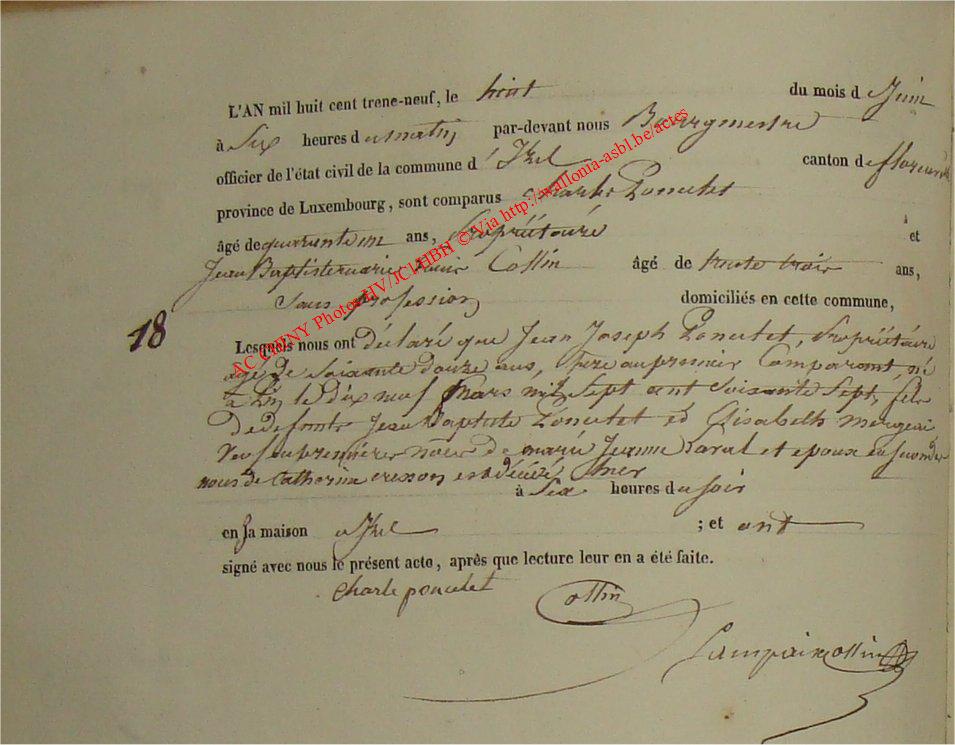 L'AN mil huit cent trene-neuf, le huit du mois d e Juin
à Six heures d u matin par-devant nous Bourgmestre
officier de l'état civil de la commune d ' Izel canton de florenville
province de Luxembourg, sont comparus Charles Poncelet
âgé de quarante un ans, Propriétaire et
Jean Baptiste marie Louis Collin âgé de trente trois ans,
Sans profession domiciliés en cette commune,
18
Lesquels nous ont déclaré que Jean Joseph Poncelet, Propriétaire
agé de Soixante douze ans, père au premier Comparant né
à le dix neuf Mars mil Sept cent Soixante Sept, fils
de defunts Jean Baptiste Poncelet et Elisabeth mergeai
veuf en premières noces de marie Jeanne et epoux en secondes
noces de Catherine cresson est décédé hier
à Six heures d u soir
en sa maison a Izel ; et ont
signé avec nous le présent acte, après que lecture leur en a été faite.
Charle poncelet
Collin
Lampaix Collin
AC CHINY Photos HV/JCl/HBH © Via http://wallonia-asbl.be/actes